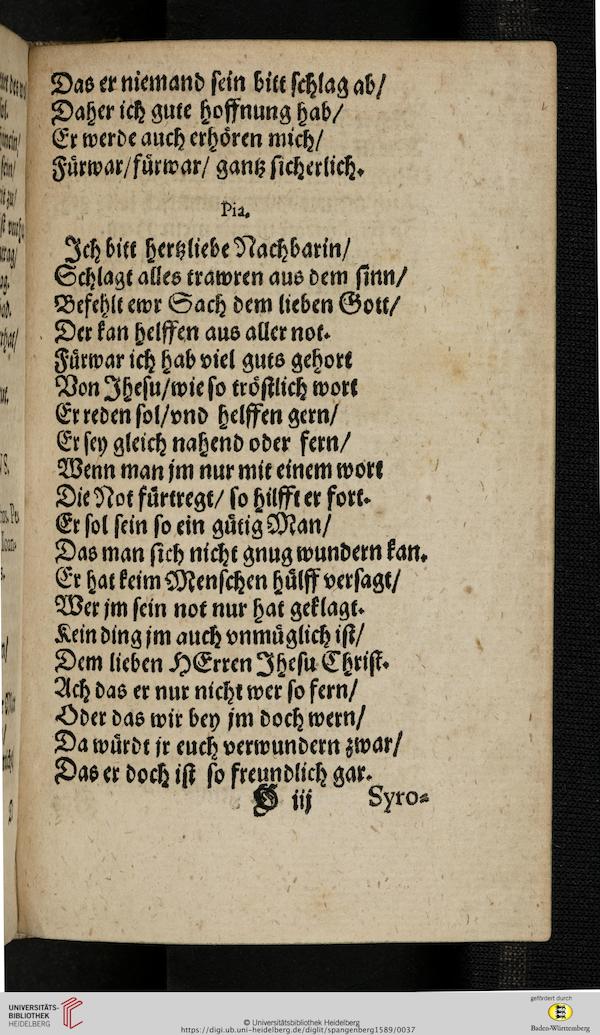 Das er niemand sein bitt schlag ab/
Daher ich gute hoffnung hab/
Er werde auch erhören mich/
Fürwar/fürwar/ gantz sicherlich.
Pia.
Ich bitt hertzliebe Nachbarin/
Schlagt alles trawren aus dem sinn/
Befehlt ewr Sach dem lieben Gott/
Der kan helffen aus aller not.
Fürwar ich hab viel guts gehort
Von Jhesu/wie so tröstlich wort
Er reden sol/vnd helffen gern/
Er sey gleich nahend oder fern/
Wenn man jm nur mit einem wort
Die Not fürtregt/ so hilfft er fort.
Er sol sein so ein gütig Man/
Das man sich nicht gnug wundern kan.
Er hat keim Menschen hülff versagt/
Wer jm sein not nur hat geklagt.
Kein ding jm auch vnmüglich ist/
Dem lieben HErren Jhesu Christ.
Ach das er nur nicht wer so fern/
Oder das wir bey jm doch wern/
Da würdt jr euch verwundern zwar/
Das er doch ist so freundlich gar.
G iij Syro=
UNIVERSITÄTS-
BIBLIOTHEK
HEIDELBERG
© Universitätsbibliothek Heidelberg
https://digi.ub.uni-heidelberg.de/diglit/spangenberg1589/0037
gefördert durch
Baden-Württemberg